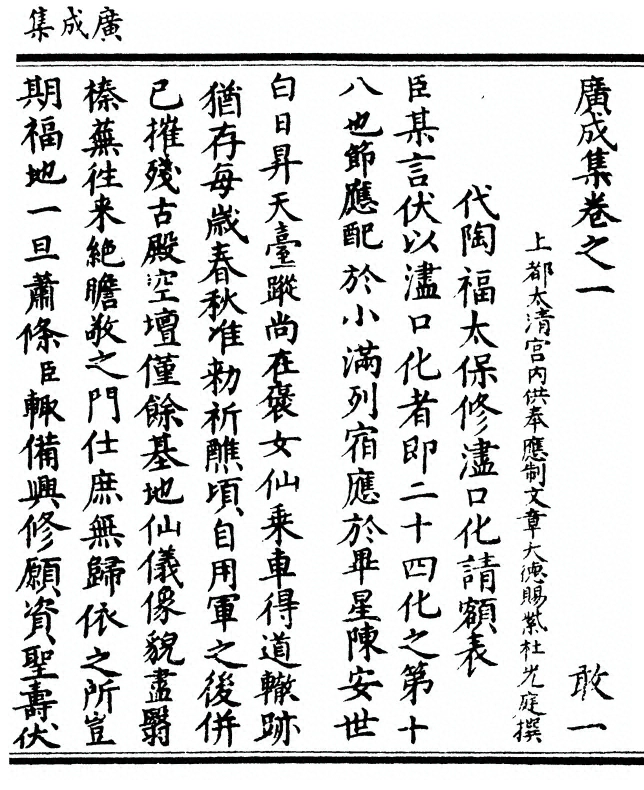 廣成集
廣成集卷之一 敢一
上都太清宮內供奉應制文章大德賜紫杜光庭撰
代陶福太保修濜口化請額表
臣某言伏以濜口化者即二十四化之第十
八也節應配於小滿列宿應於畢星陳安世
白日昇天臺蹤尚在褒女仙乘車得道轍跡
猶存每歲春秋准勑祈醮頃自用軍之後併
已摧殘古殿空壇僅餘基地仙儀像貌盡翳
榛蕪往来絶瞻敬之門仕庶無歸依之所豈
期福地一旦蕭條臣輙備興修願資聖壽伏